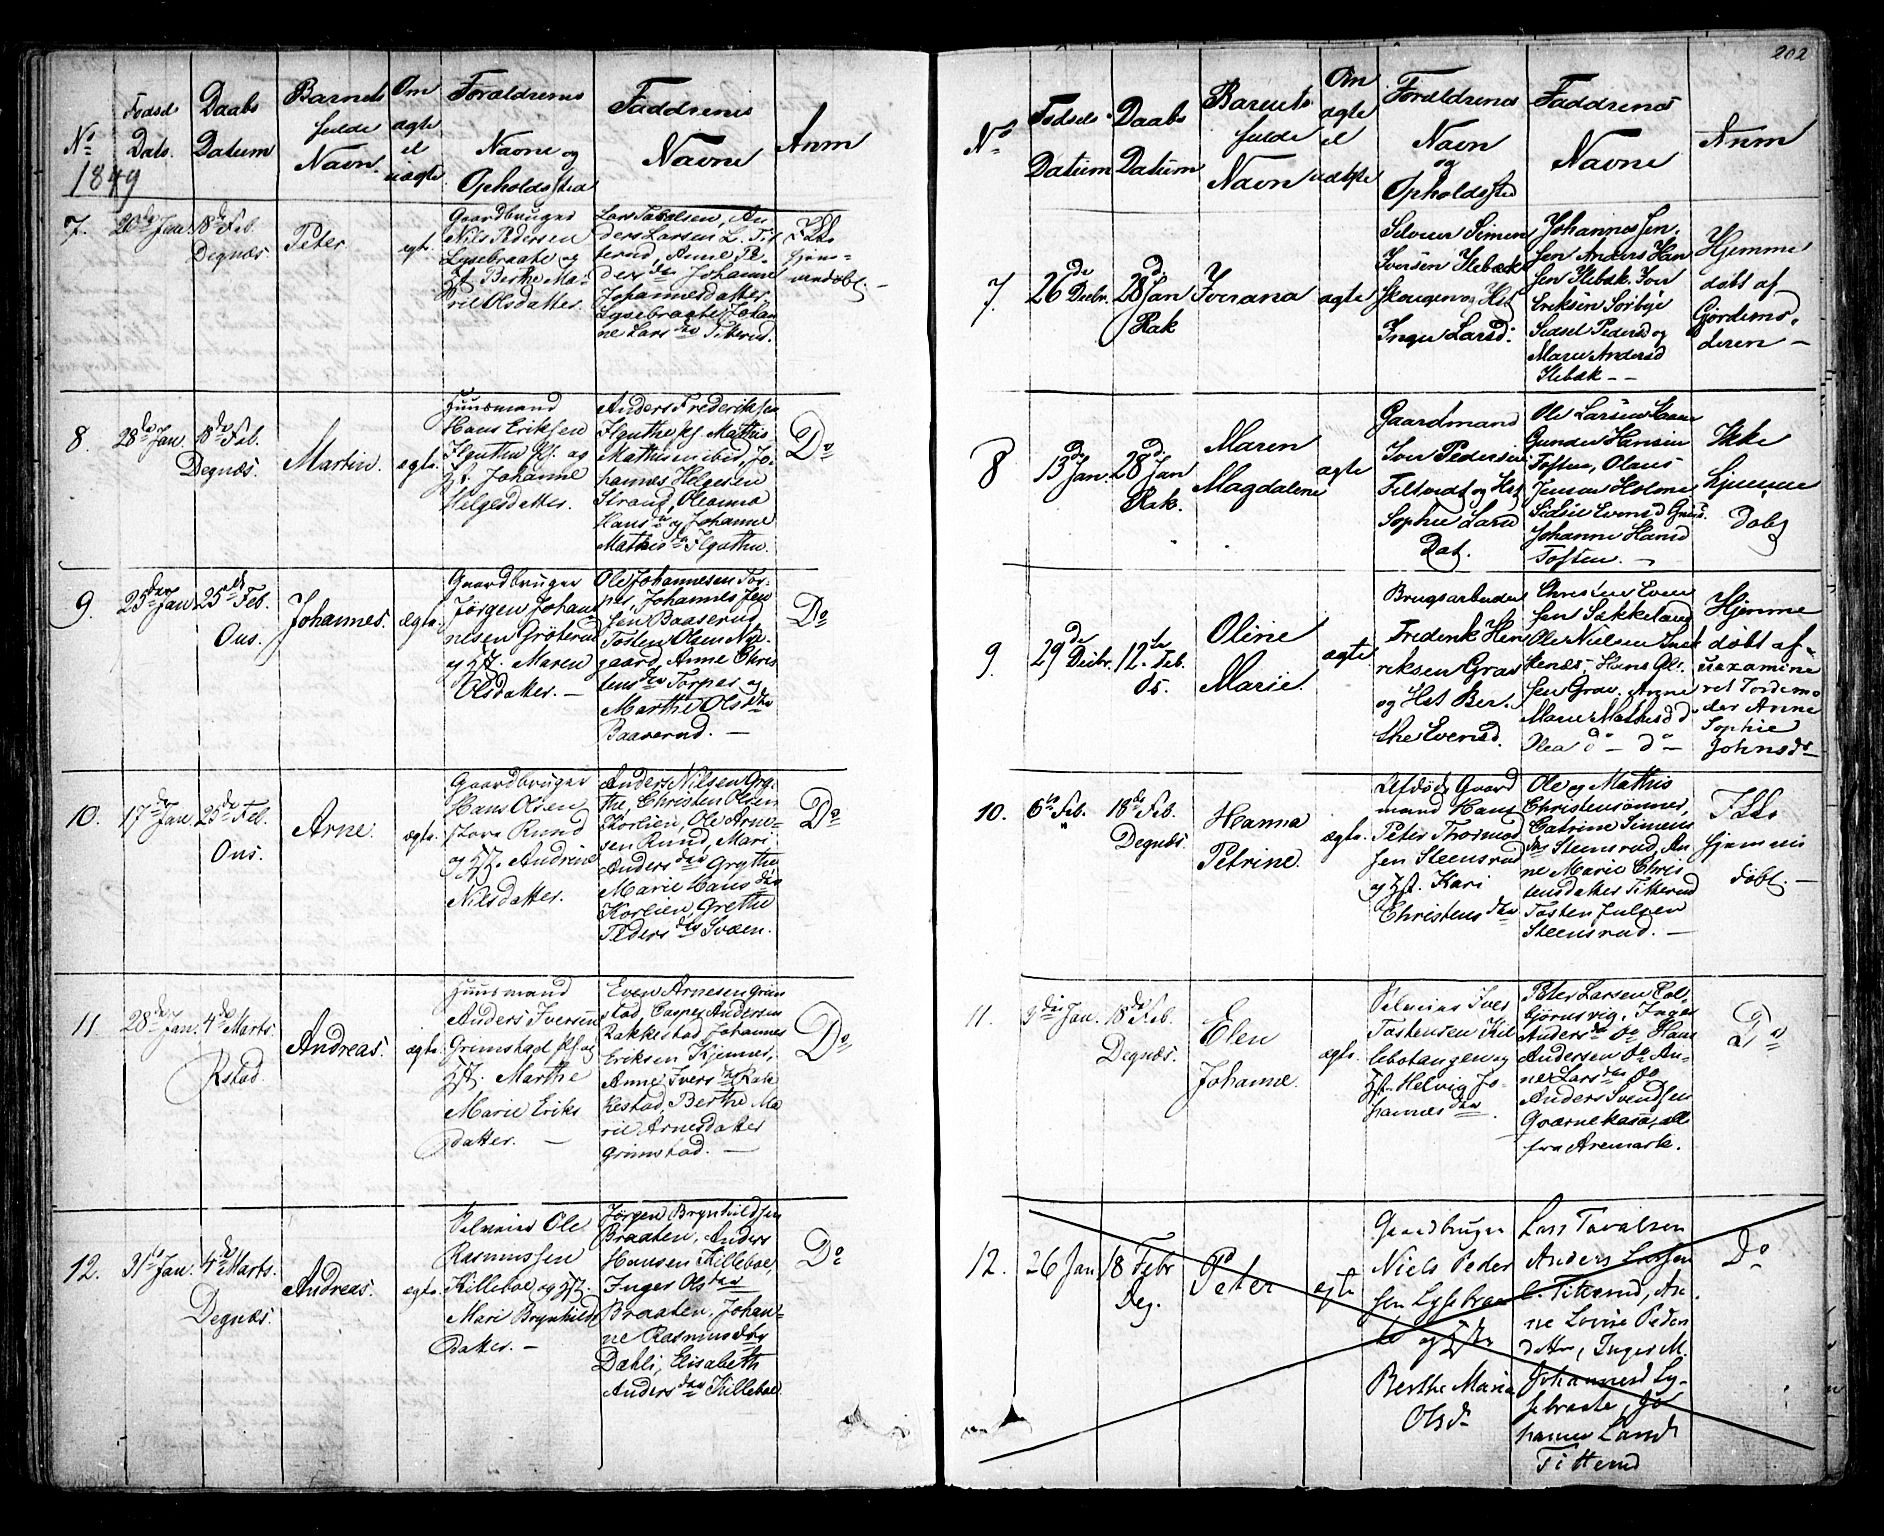 202
No
1849
Fødsel
Dato.
Daabs
Datum
Barnets
fulde
Navn.
Om
ægte
el
uægte
Forældrenes
Navne og
Opholdssted
Faddrenes
Navne
Anm
7.
26de Jan
18de Feb.
Degnæs.
Peter
ægt.
Gaardbruger
Nils Pedersen
Lysebraate og
Hst. Berthe Ma-
rie Olsdatter.
Lars Tavelsen, An-
ders Larsen L. Tit-
terud, Anne Pe-
dersdtr Johanne
Johannesdatter
Lysebraate, Johan-
ne Larsdtr Titterud.
Ikke
hjem-
medøbt. –
8.
28de Jan.
18de Feb.
Degnæs.
Martin.
ægte.
Huusmand
Hans Eriksen
og
Hst. Johanne
Helgesdatter.
Anders Frederiksen
Mathis
Mathisen ibid, Jo-
hannes Helgesen
Strand, Oleanna
Hansdr og Johanne
Mathisdtr
Do
9.
25de Jan
25de Feb.
Ous.
Johannes.
ægte.
Gaardbruger
Jørgen Johan-
nesen Grøterud
og Hst. Maren
Olsdatter. –
Ole Johannesen Tor-
per, Johannes Jen
sen Baaserud
Tosten Olsen Nør-
gaard, Anne Chris
tensdtr Torper og
Marthe Olsdtr
Baaserud. –
Do
10.
17de Jan
25de Feb.
Ous.
Arne.
ægte.
Gaardbruger
Hans Olsen
Store Rund
og Hst. Andrine
Nilsdatter.
Anders Nilsen Gry-
the, Christen Olsen
Korlien, Ole Arne-
sen Rund, Mari
Andersdtr Grythe
Marie Hansdtr
Korlien, Grethe
Pedersdtr Svæen.
Do
11
28de Jan.
4de Marts.
Rstad.
Andreas.
ægte.
Huusmand
Anders Iversen
Grimstad og
Hst. Marthe
Marie Eriks
datter. –
Even Arnesen Grim
stad, Casper Andersen
Rakkestad, Johannes
Eriksen Kjennes,
Anne Iversdtr Rak
kestad, Berthe Ma
rie Arnesdatter
Grimstad. –
Do
12.
31te Jan.
4de Marts.
Degnæs.
Andreas.
ægte.
Selveier Ole
Rasmussen
Killeboe og Hst.
Mari Brynhilds
datter. –
Jørgen Brynhildsen
Braaten, Anders
Hansen Killeboe,
Inger Olsdtr
Braaten, Johan-
ne Rasmusdtr
Dahli, Elisabeth
Andersdtr Killeboe.
Do
No
Fødsels
Datum
Daabs
Datum
Barnets
fulde
Navn
Om
ægte
el
uægte
Forældrenes
Navn
og
Opholdssted
Faddrenes
Navne
Anm
7.
26de Decbr.
28d Jan
Rak
Iverana
ægte
Selveier Simen
Iversen Ilebæk
Skougen og Hst
Inger Larsd:
Johannes Jen-
sen Anders Han
sen Ilebæk. Iver
Eriksen Sørbye
Sidsel Pedersd og
Maria Andersd
Ilebæk – –
Hjemme
døbt af
Gjordemo-
deren –
8
13de Jan.
28d Jan
Rak.
Maren
Magdalene
ægte
Gaardmand
Iver Pedersen
Tiltvedt og Hst
Sophie Lars
Dat.
Ole Larsen
Gunder Hansen
Toften, Olaus
Jensen Holme
Sidsil Evensd
Johanne Hansd
Toften. –
Ikke
hjemme
Døbt
9.
29de Decbr.
12te Feb.
Os.
Oline
Marie.
ægte
Brugsarbeider
Frederik Hen
riksen Grav
og Hst Ber-
the Evensd.
Christen Even
sen Sækkelaug
Ole Nielsen
Hans Ol-
sen Grav. Anne
Marie Mathisd d
Olea do – do –
Hjemme
døbt af
uexamine
ret Jordemo
der Anne
Sophie
Johnsdr –
10.
6te Feb.
18de Feb.
Degnæs.
Hanna
Petrine.
ægte.
Afdøde Gaard
mand Hans
Peter Thormod
sen Steensrud
og Hst. Kari
Christensdtr
Ole og Mathis
Christensønner,
Catrine Simens
dtr Steensrud, An
ne Marie Chris
tensdatter Titterud
Tosten Julsen
Steensrud. –
Ikke
hjemme
døbt. –
11.
9de Jan.
18de Feb.
Degnæs.
Elen
Johanne.
ægte.
Selveier Iver
Tostensen Kil
lebotangen og
Hst. Helvig Jo-
hannesdtr.
Peter Larsen Kol-
bjørnsvig, Inger
Andersdr do Hans
Andersen do An-
ne Larsdtr do
Anders Svendsen
Qværnekasa, alle
fra Aremark.
Do
12.
26 Jan
18 Febr
Deg.
Peter
ægte
Gaardbruger
Niels Peder
sen Lysebraa
te og Hst
Berthe Maria
Olsdr
Lars Tavalsen
Anders Larsen
L. Titterud, An-
ne Lovise Peders
datter, Inger M.
Johannesd Ly-
sebraate, Jo
hanne Larsd
Titterud
Do